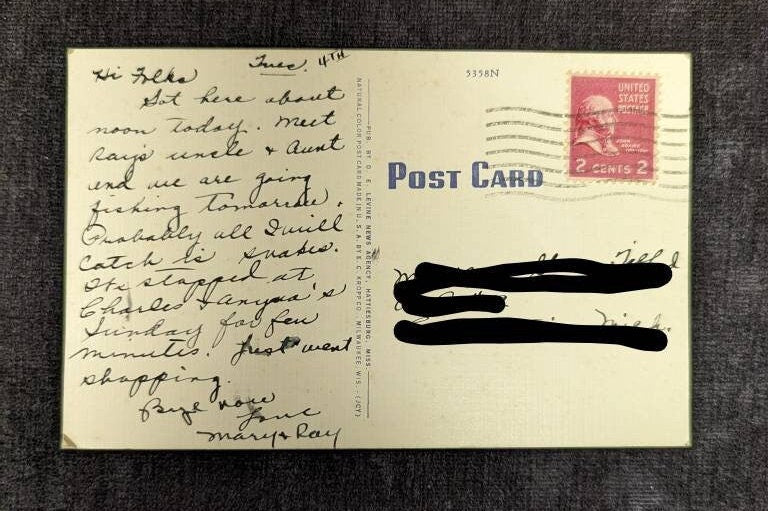 Tues. 4TH
Hi Folks
Got here about
noon today. Meet
Ray's uncle & Aunt
and we are going
fishing tomorrow.
Probably all I will
catch is snakes.
stopped at
Charles &
Sunday for few
minutes. Just went
shopping.
Bye now
Love
Mary & Ray
PUB. BY D. E. LEVINE NEWS AGENCY, HATTIESBURG, MISS.
NATURAL COLOR POST CARD MADE IN U. S. A. BY E. C. KROPP CO., MILWAUKEE, WIS. - (JCY)
5358N
POST CARD
UNITED
STATES
POSTAGE
JOHN
ADAMS
2 CENTS 2
Mich.